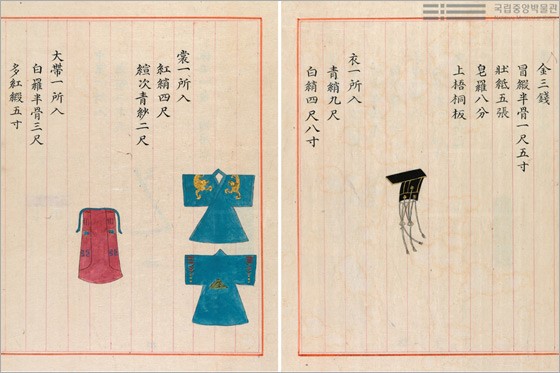 국립중앙박물관
金三錢
冒緞半骨一尺五寸
壯紙五張
皂羅八分
上梧桐板
衣一所入
青綃九尺
白綃四尺八寸
裳一所入
紅綃四尺
縇次青紗二尺
大帶一所入
白羅半骨三尺
多紅緞五寸